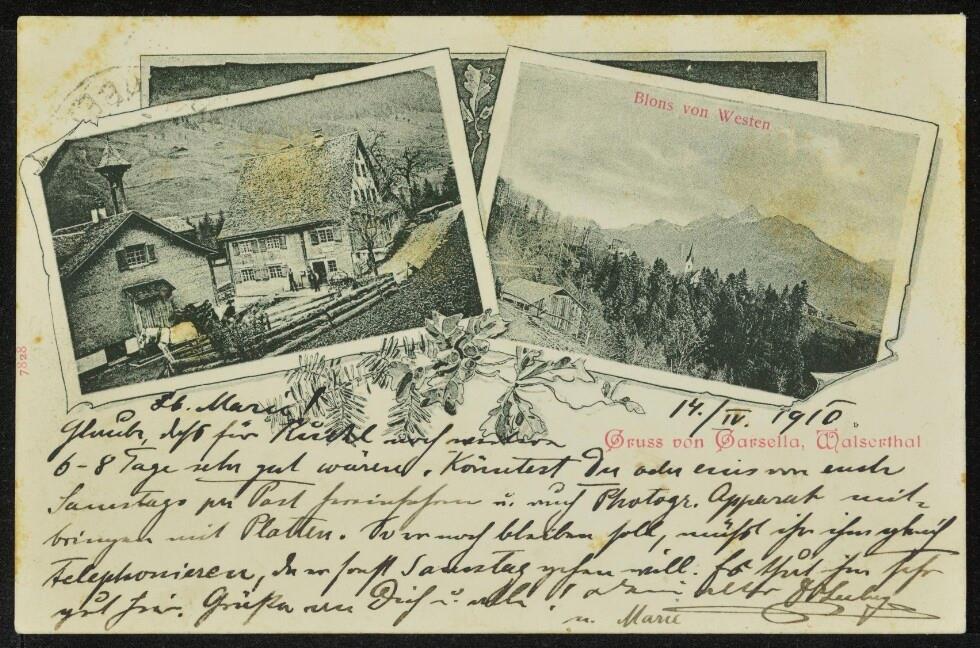 Blons von Westen
7828
Lb. Marie!
14./IV. 1910
Gruss von Garsella, Walserthal
Glaube, daß für noch weitere
6-8 Tage sehr gut wären. Könntest Du oder eines von euch
Samstags per Post hereinfahren u. auch Photogr. Apparat mit-
bringen mit Platten. So er noch bleiben soll, müßt ihr ihm gleich
telephonieren, da er sonst Samstag gehen will. Es thut ihm sehr
gut hier. Grüße an Dich u. alle! Dein alter
u. Marie